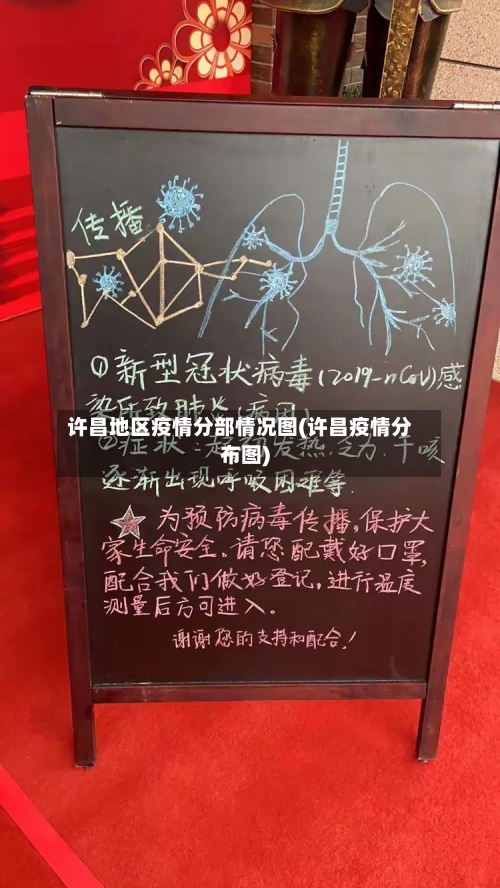 传播
①新型冠状病毒(2019-nCoV)感
染所致肺炎(病因)
许昌地区疫情分部情况图(许昌疫情分
布图)
②症状:起初发热.乏力.干咳
逐渐出现呼吸困难等.
为预防病毒传播,保护大
家生命安全.请您配戴好口罩,
配合我们做好登记,进行温度
测量后方可进入。
谢谢您的支持和配合!